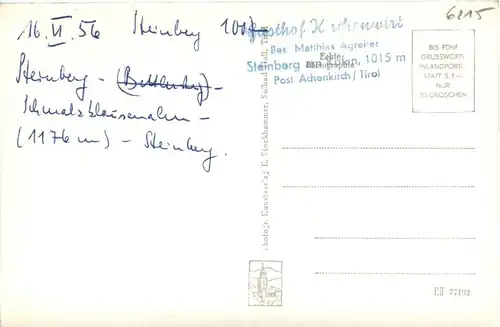 16. VI. 56 Steinberg
Steinberg –
Schmalzklausenalm –
(1176 m) – Steinberg.
6215
Gasthof Kirchenwirt
Bes. Matthias Agreiter
Steinberg am Rofan, 1015 m
Post Achenkirch/Tirol
Echte
BIS FÜNF
GRUSSWORTE
INLANDPORTO
STATT S 1·–
NUR
30 GROSCHEN
Photogr. Kunstverlag E. Stockhammer, Solbad Hall, Tirol
77192